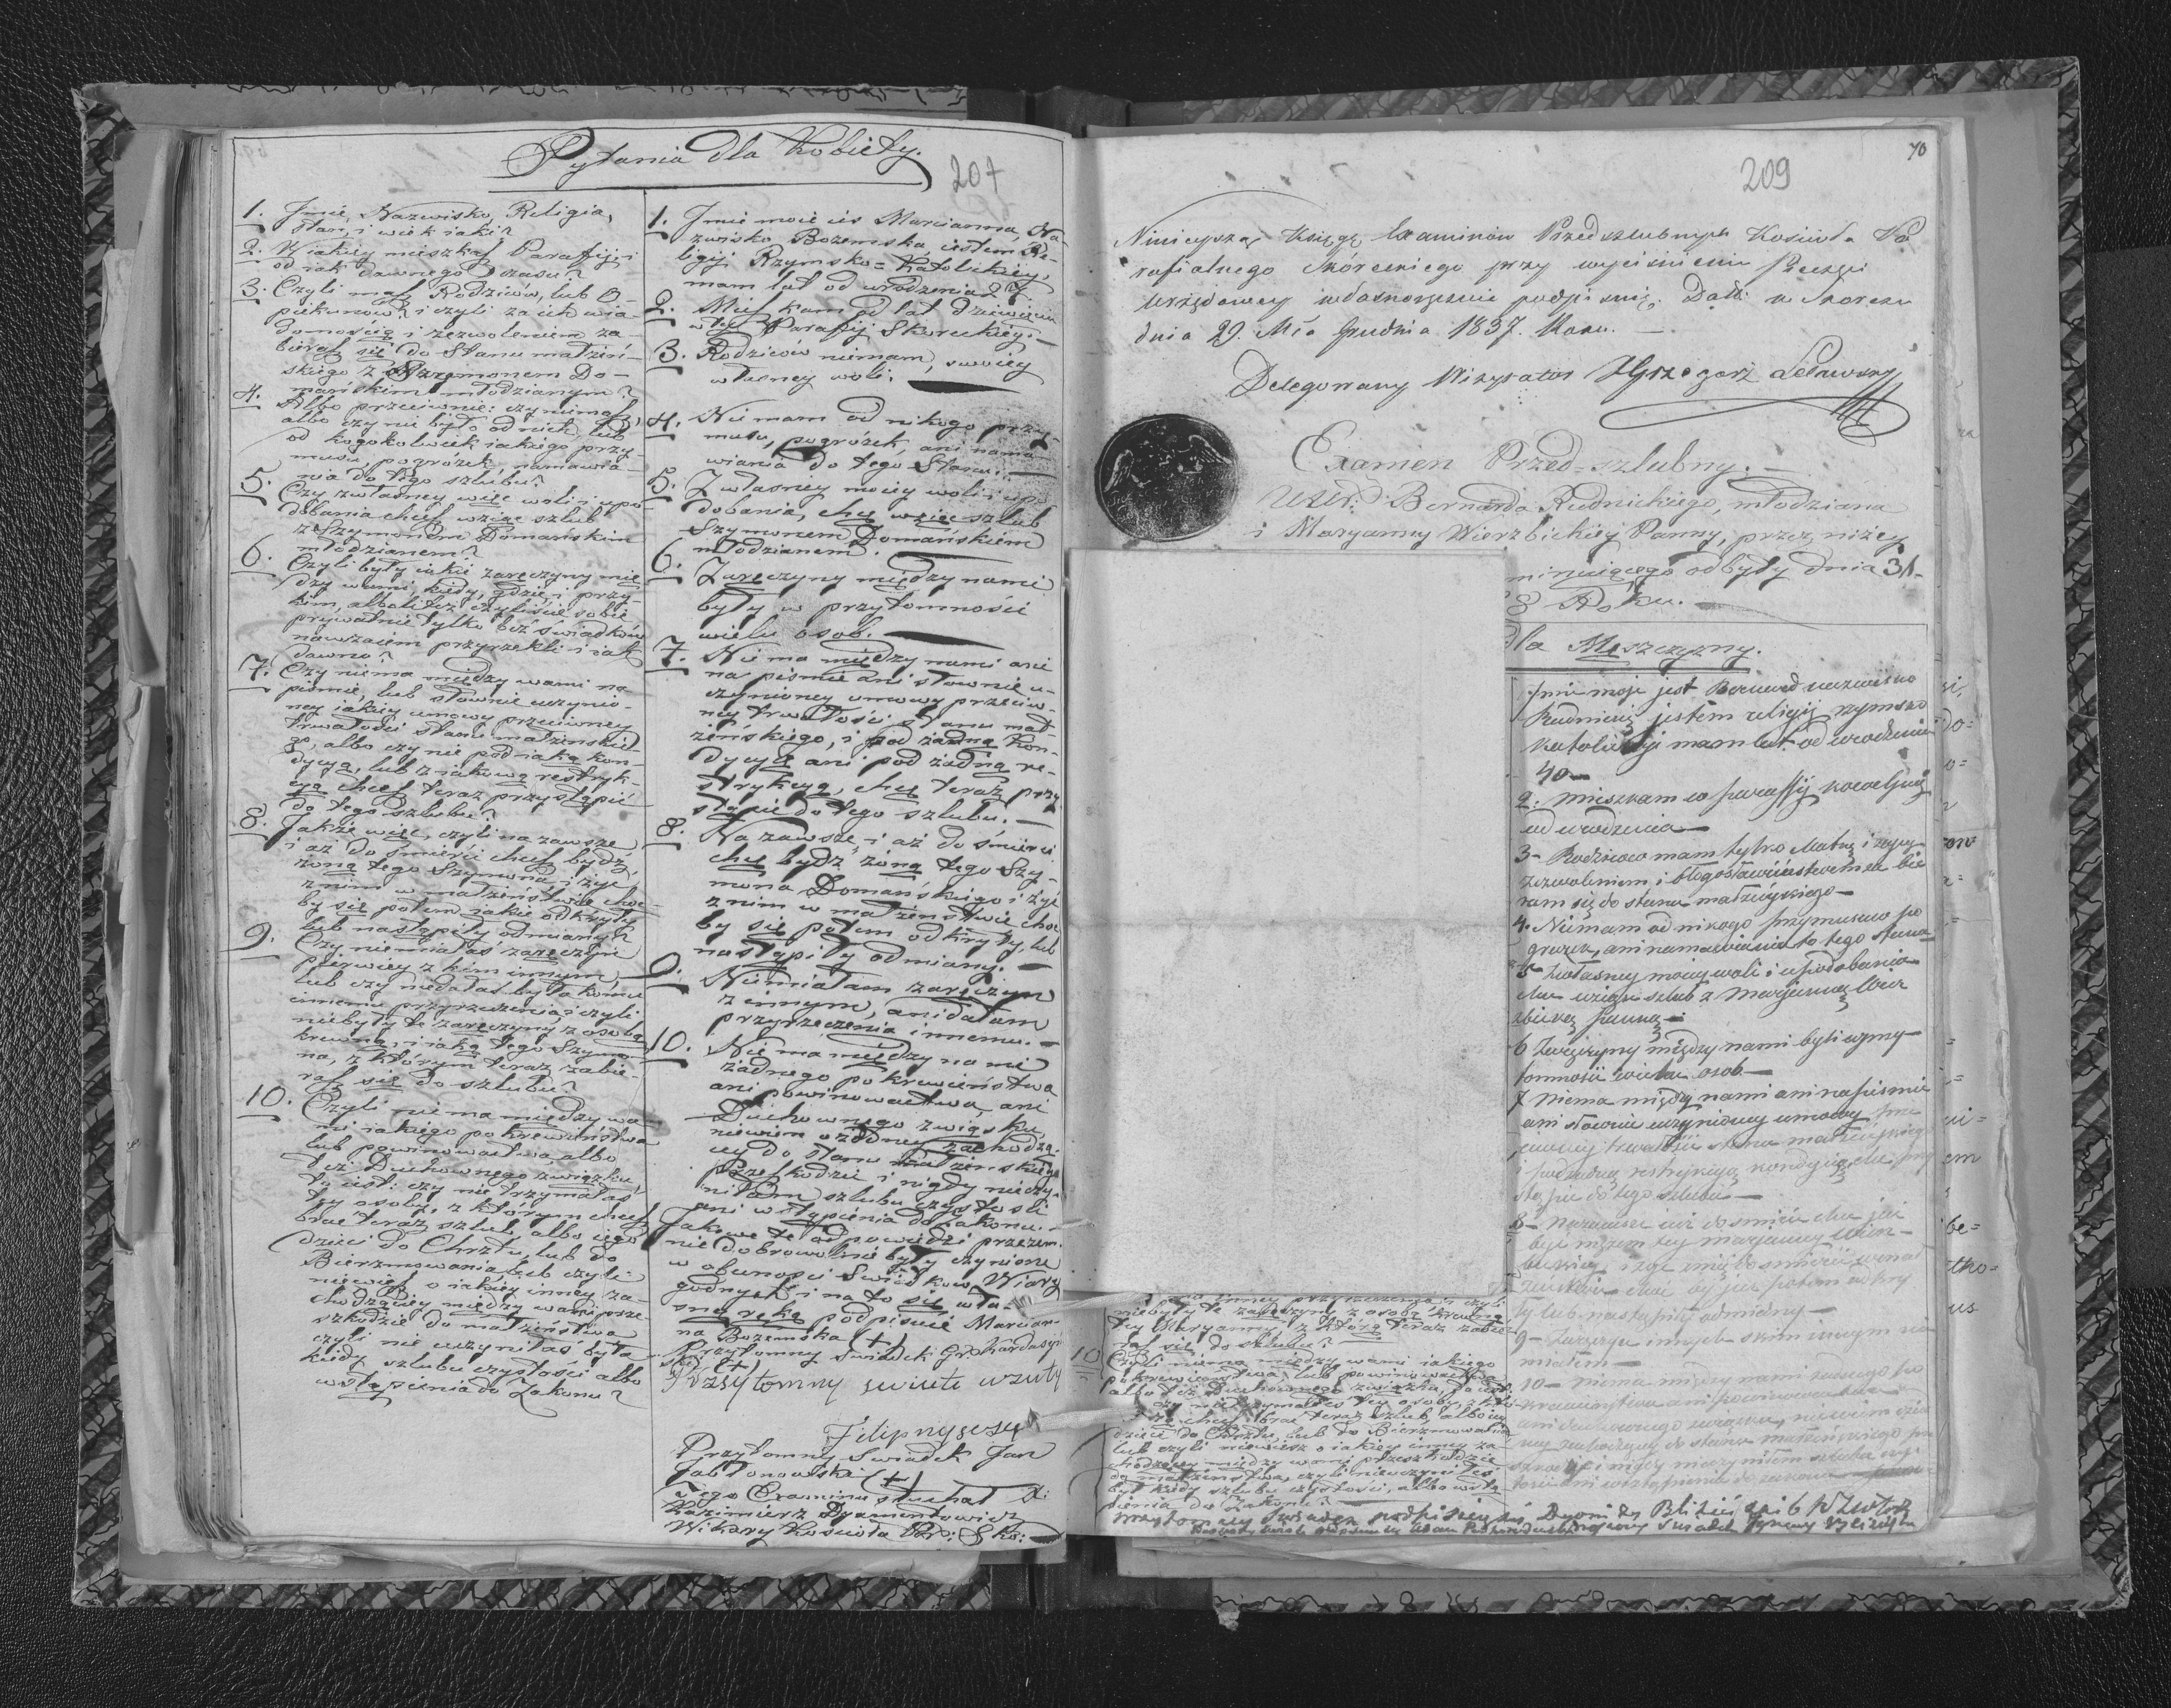 Pytania dla Kobiety.
207
1. Jmie, Nazwisko, Religia,
stan, i wiek iaki?
2. W iakiey mieszkasz Paraffij i
od iak dawnego czasu?
3. Czyli masz Rodziców, lub O-
piekunów? i czyli za ich wia-
domością i zezwoleniem za-
bierasz się do Stanu małżeń-
skiego z Szymonem Do-
mańskim młodzianym?
4. Albo przeciwnie: czy nimasz
albo czy nie było od nich, lub
od kogokolwiek iakiego przy-
musu, pogróżek, namawia-
nia do tego szlubu?
5. Czy z własney więc woli i upo-
dobania chcesz wziąć szlub
z Szymonem Domańskim
młodzianem?
6. Czyli były iakie zaręczyny mię
dzy wami, kiedy, gdzie, i przy-
kim, albo li też czyliście sobie
prywatnie tylko bez świadków
nawzaiem przyrzekli i iak
dawno?
7. Czy niema między wami na
piśmie, lub słownie uczynio-
ney iakiey umowy przeciwney
trwałości stanu małżenskie-
go, albo czy nie pod iaką kon-
dycyą, lub z iakową restryk-
cyą chcesz teraz przystąpić
do tego szlubu?
8. Jakże więc, czyli na zawsze
i aż do śmierci chcesz bydź
żoną tego Szymona, i żyć
z nim w małżeństwie choć-
by się potem iakie odkryły
lub nastąpiły odmiany?
9. Czy niemiałaś zaręczyn
pierwiey z kim innym
lub czy niedałaś była komu
innemu przyrzeczenia, i czyli
niebyły te zaręczyny z osobą
krewną, i iaką tego Szymo-
na, z którym teraz zabie-
rasz się do szlubu?
10. Czyli niema między wa-
mi iakiego pokrewieństwa
lub powinowactwa, albo
też Duchownego związku,
to iest: czy nie trzymałaś
tey osoby, z którym chcesz
brac teraz szlub, albo iego
dzieci do Chrztu, lub do
Bierzmowania, lub czyli
niewiesz o iakiey inney za-
chodzącey między wami prze-
szkodzie do małżeństwa
czyli nie uczyniłaś była
kiedy szlubu czystości albo
wstąpienia do Zakonu?
1. Jmie moie ies Marcianna, Na-
zwisko Bozemska, iestem Re-
ligij Rzymsko=Katolickiey,
mam lat od urodzenia 27
2. Mieszkam od lat dziewięciu
w tey Paraffij Skureckiey.
3. Rodziców niemam, swoiey
własney woli.
4. Nie mam od nikogo przy-
musu, pogróżek, ani nama-
wiania do tego Stanu.
5. Z własney moiey woli i upo
dobania, chcę wziąć szlub
Szymonem Domańskiem
młodzianem.
6. Zaręczyny między nami
były w przytomności
wielu osob.
7. Nie ma między nami ani
na piśmie ani słownie u-
czynioney umowy przeciw-
ney trwałości stanu mał-
żenskiego, i pod żadną kon-
dycyą ani pod żadną re-
strykcyą, chcę teraz przy
stąpić do tego szlubu.
8. Na zawsze i aż do śmierci
chcę bydź żoną tego Szy-
mona Domańskiego i żyć
z nim w małżenstwie choć
by się potem odkryły, lub
nastąpiły odmiany.
9. Niemiałam zaręczyn
z innym, ani dałam
przyrzeczenia innemu.
10. Nie ma między nami
żadnego pokrewieństwa
ani powinowactwa, ani
Duchownego związku
niewiem o żadney zachodzą-
cey do stanu małżenskiego
przeszkodzie i nigdy nieczy-
niłam szlubu czystości
ani wstąpienia do zakonu.
Jakowe te odpowiedzi przezem-
nie dobrowolnie były czynione
w obecności Swiadkow Wiary
godnych i na to się wła-
sną ręką podpisuie Marcian-
na Bozemska (+)
Przytomny Swiadek Grz. Kardasz
Przsytomny swiate
Filip
Przytomny Swiadek Jan
Jabłonowski (+)
Tego Examinu słuchał X.
Kazimierz Dyamentowicz
Wikary Kościoła Par: Sko:
70
209
Ninieyszą Księgę Examinów Przedszlubnych Kościoła Pa
rafialnego Skóreckiego przy wyciśnieniu Pieczęci
Urzędowey własnoręcznie podpisuię. Datt: w Skorcu
dnia 29. Mca Grudnia 1837. Roku.
Delegowany Wizytator X Grzegorz
Examen Przed=szlubny.
Ucz: Bernarda Rudnickiego, młodziana
i Maryanny Wierzbickiey Panny, przez niżey
minuiącego odbyty dnia 31
8 Roku.
dla Męszczyzny.
Jmie moje jest Bernard nazwisko
Rudnicki jestem religij rzymsko
katolickiji mam lat od urodzenia
40
2. mieszkam w paraffij
od urodzenia
3- Rodziców mam tylko Matkę i z jey
zezwoleniem i błogosławieństwem za bie
ram się do stanu małżyńskiego
4. Niemam od nikogo przymusu po
gruzek, ani namawiania to tego stanu
5- Zwłasney moiey woli i upodobania
chce wziąść szlub z Marjanną Wier
zbicką panną
6 Zaręczyny między nami byli w przy-
tomności wielu osob
7 niema między nami ani na piśmie
ani słownie uczynioney umowy prze
ciwney trwałości stanu małżeńskiego
i pod żadną restrykcyą kondycyą chce przy
stąpić do tego szlubu
8- Na zawsze i aż do śmierci chce już
być mężem tey Marjanny Wierz-
bickiey i żyć z nią do smierci w mał
żeństwie choć by się potem odkry
ły lub nastąpiły odmiany
9- Zaręczyn innych skim innym nie
miałem
10- niema między nami żadnego po
krewieństwa ani powinowactwa
ani duchownego związku, niewiem o żad
ney zachodzącey do stanu małżeńskiego prze
szkodzie i nigdy nieczyniłem szlubu czy-
stości ani wstąpienia do zakonu
inney przyrzeczenia i czyli
niebyły te zaręczyny z osobą krewną
tey Maryanny z którą teraz zabie-
rasz się do szlubu?
10 Czyli niema między wami iakiego
pokrewieństwa, lub powinowactwa
albo też Duchownego związku, to iest:
czy nietrzymałeś tey osoby, z któ-
rą chcesz brać teraz szlub, albo iey
dzieci do Chrztu, lub do Bierzmowania
lub czyli niewiesz o iakiey inney za-
chodzącey między wami przeszkodzie
do małżeństwa, czyli nieuczyniłeś
był kiedy szlubu czystości, albo wstą
pienia do Zakonu?